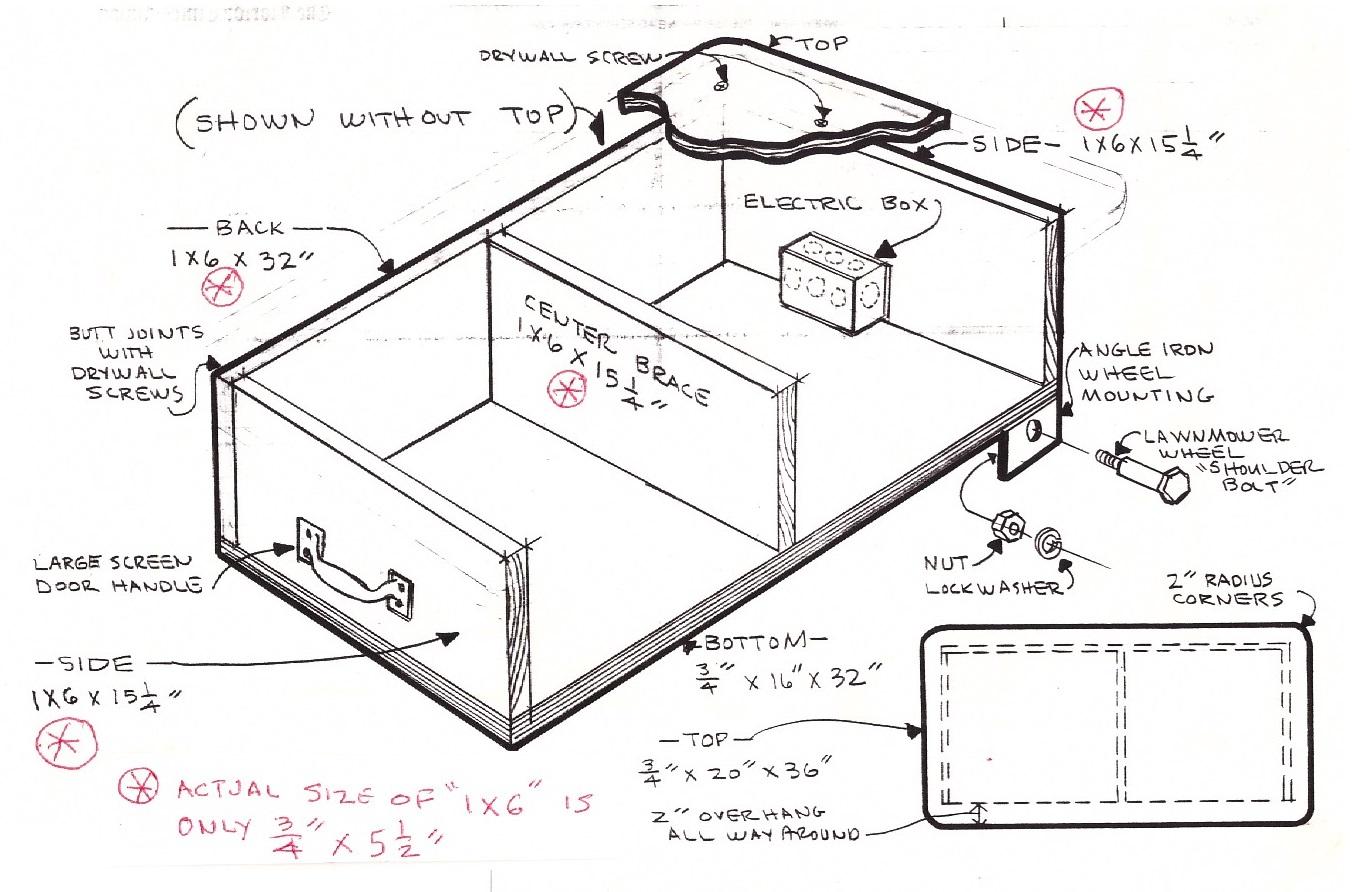 DRYWALL SCREW
TOP
(SHOWN WITHOUT TOP)
SIDE- 1X6X15 1/4"
ELECTRIC BOX
-BACK-
1X6 X 32"
BUTT JOINTS
WITH
DRYWALL
SCREWS
CENTER BRACE
1X6 X 15 1/4"
ANGLE IRON
WHEEL
MOUNTING
LAWNMOWER
WHEEL
"SHOULDER
BOLT"
LARGE SCREEN
DOOR HANDLE
NUT
LOCKWASHER
2" RADIUS
CORNERS
-SIDE-
1X6 X 15 1/4"
-BOTTOM-
3/4" X 16" X 32"
-TOP-
3/4" X 20" X 36"
2" OVERHANG
ALL WAY AROUND
ACTUAL SIZE OF "1X6" IS
ONLY 3/4" X 5 1/2"